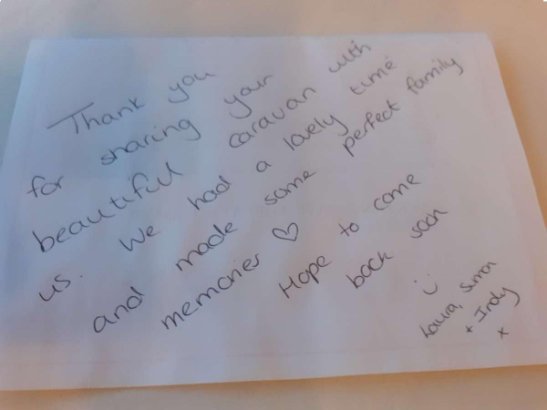 Thank you
for sharing your
beautiful caravan with
us. We had a lovely time
and made some perfect family
memories ♡
Hope to come
back soon
Laura, Simon
+
x